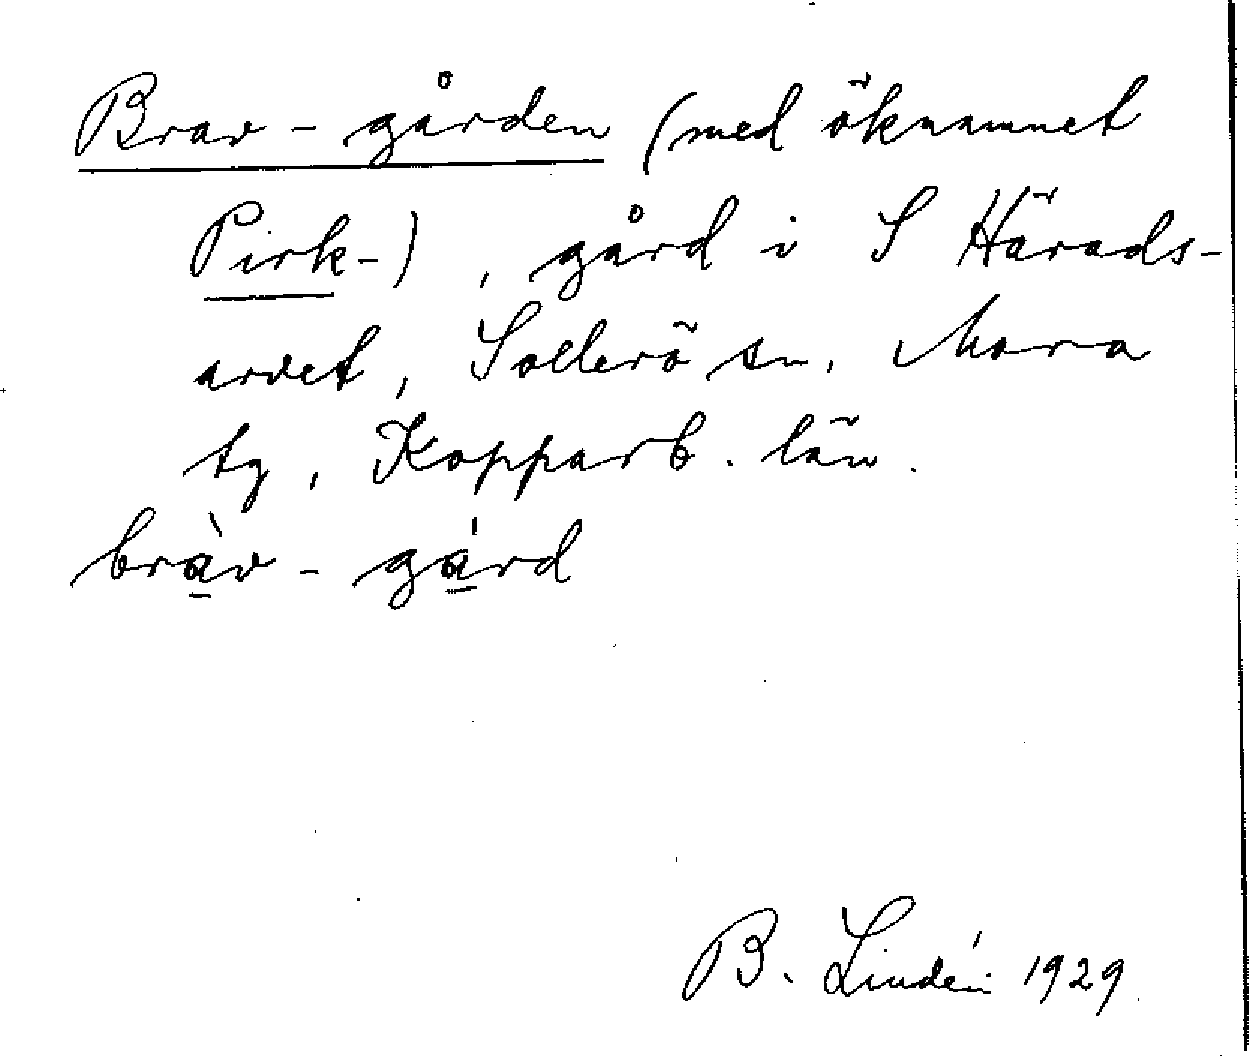 Brav-gården (med öknamnet
Pirk-), gård i S Härads-
arvet, Sollerö sn, Mora
tg, Kopparb. län.
bràv-gárd
B. Lindén 1929